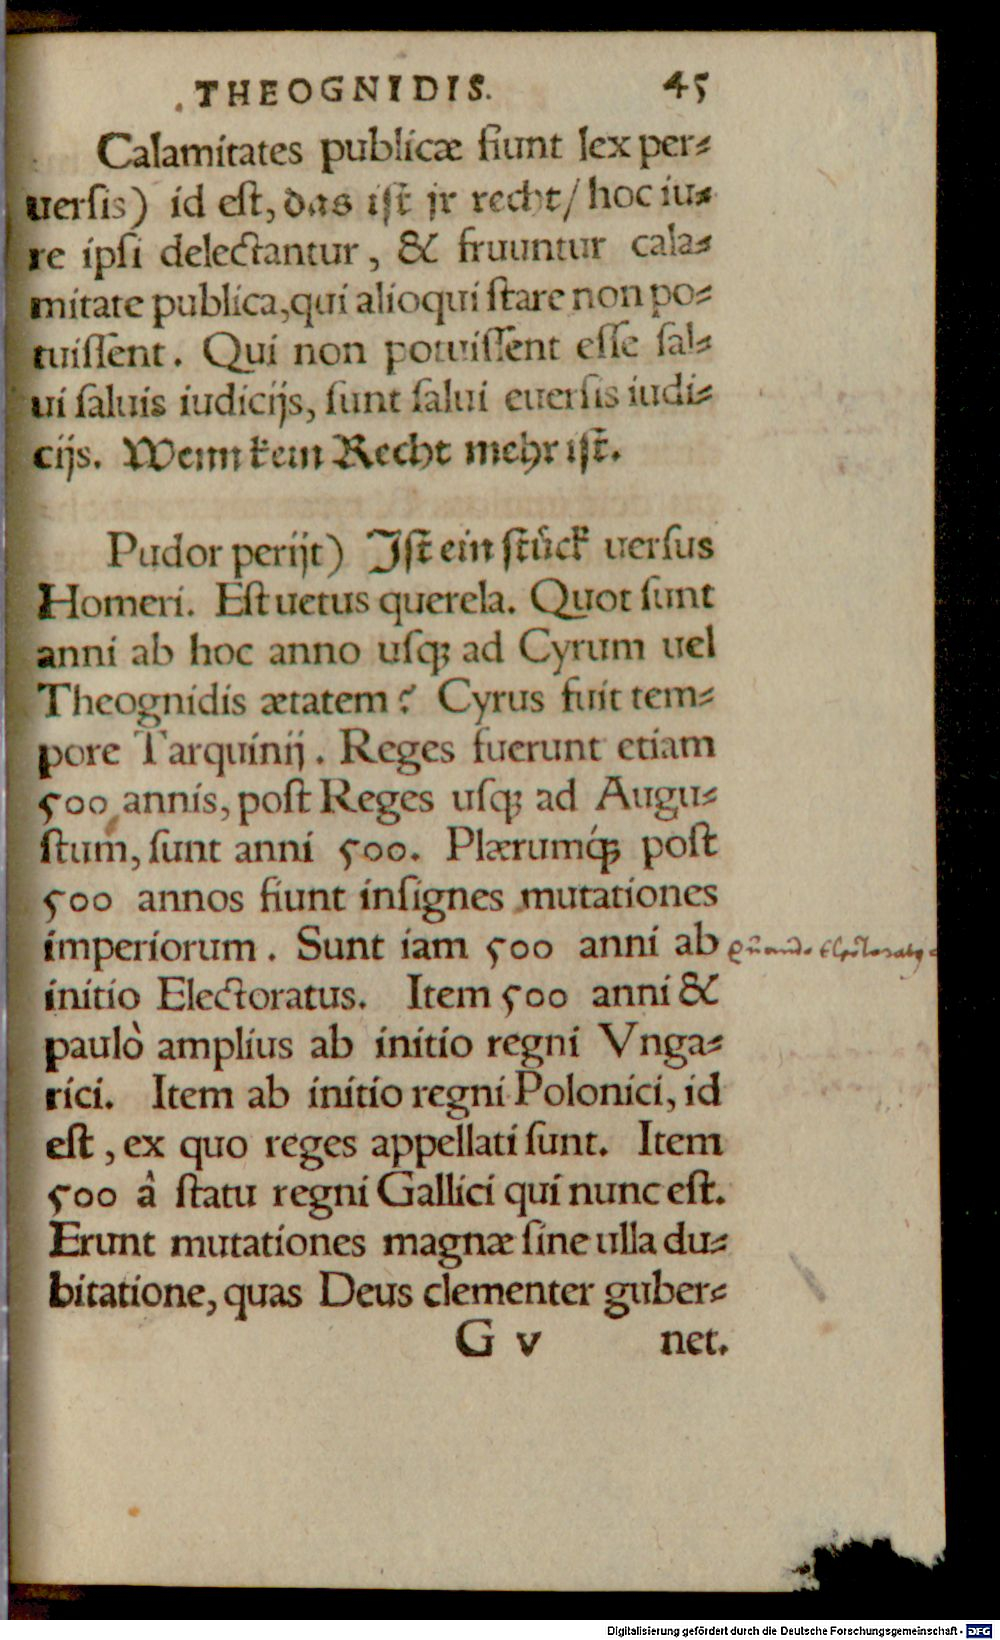 THEOGNIDIS. 45
Calamitates publicæ fiunt lex per⸗
uersis) id est, das ist jr recht/ hoc iu⸗
re ipsi delectantur, & fruuntur cala⸗
mitate publica, qui alioqui stare non po⸗
tuissent. Qui non potuissent esse sal⸗
ui saluis iudicijs, sunt salui euersis iudi⸗
cijs. Wenn kein Recht mehr ist.
Pudor perijt) Ist ein stück uersus
Homeri. Est uetus querela. Quot sunt
anni ab hoc anno usq; ad Cyrum uel
Theognidis ætatem? Cyrus fuit tem⸗
pore Tarquinij. Reges fuerunt etiam
500 annis, post Reges usq; ad Augu⸗
stum, sunt anni 500. Plærumq́; post
500 annos fiunt insignes mutationes
imperiorum. Sunt iam 500 anni ab
initio Electoratus. Item 500 anni &
paulò amplius ab initio regni Vnga⸗
rici. Item ab initio regni Polonici, id
est, ex quo reges appellati sunt. Item
500 â statu regni Gallici qui nunc est.
Erunt mutationes magnæ sine ulla du⸗
bitatione, quas Deus clementer guber⸗
G v net.
Digitalisierung gefördert durch die Deutsche Forschungsgemeinschaft - DFG